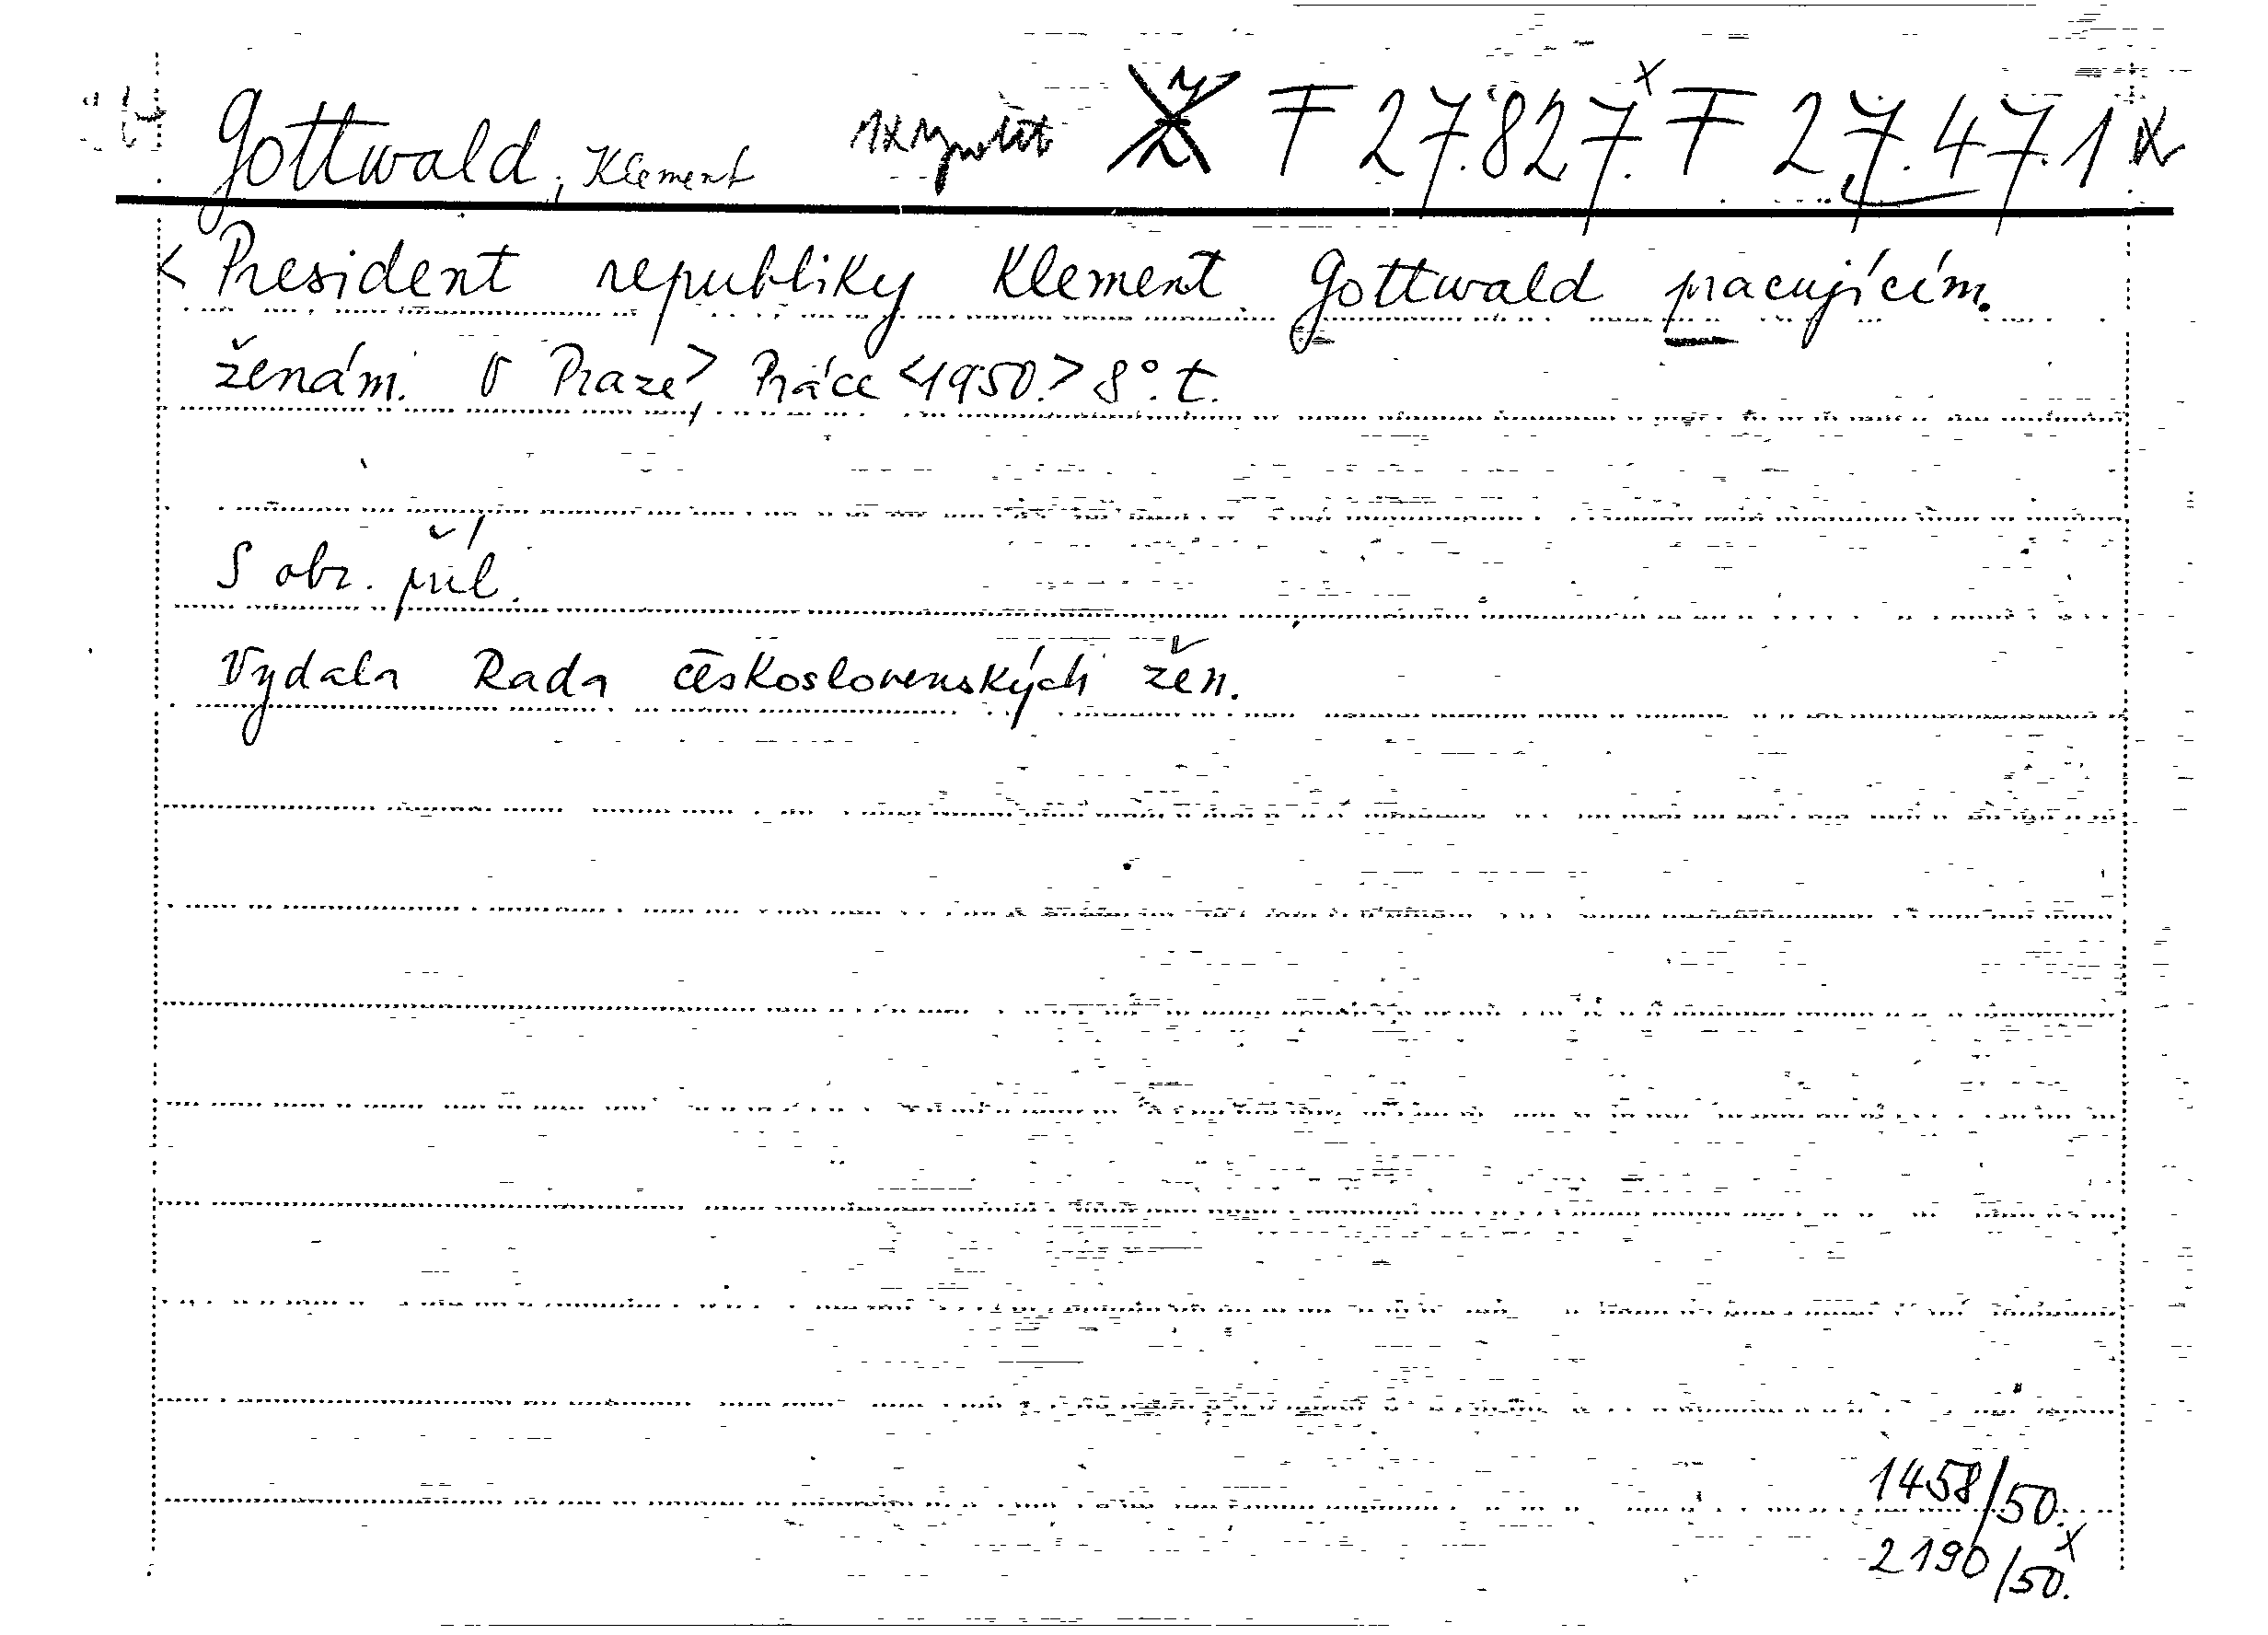 Gottwald, Klement F 27.827.x F 27.471 x
< President republiky Klement Gottwald pracujícím
ženám. V Praze>, Práce <1950.> 8°. t.
S obr. příl.
Vydala Rada československých žen.
1458/50.
2190/50.x